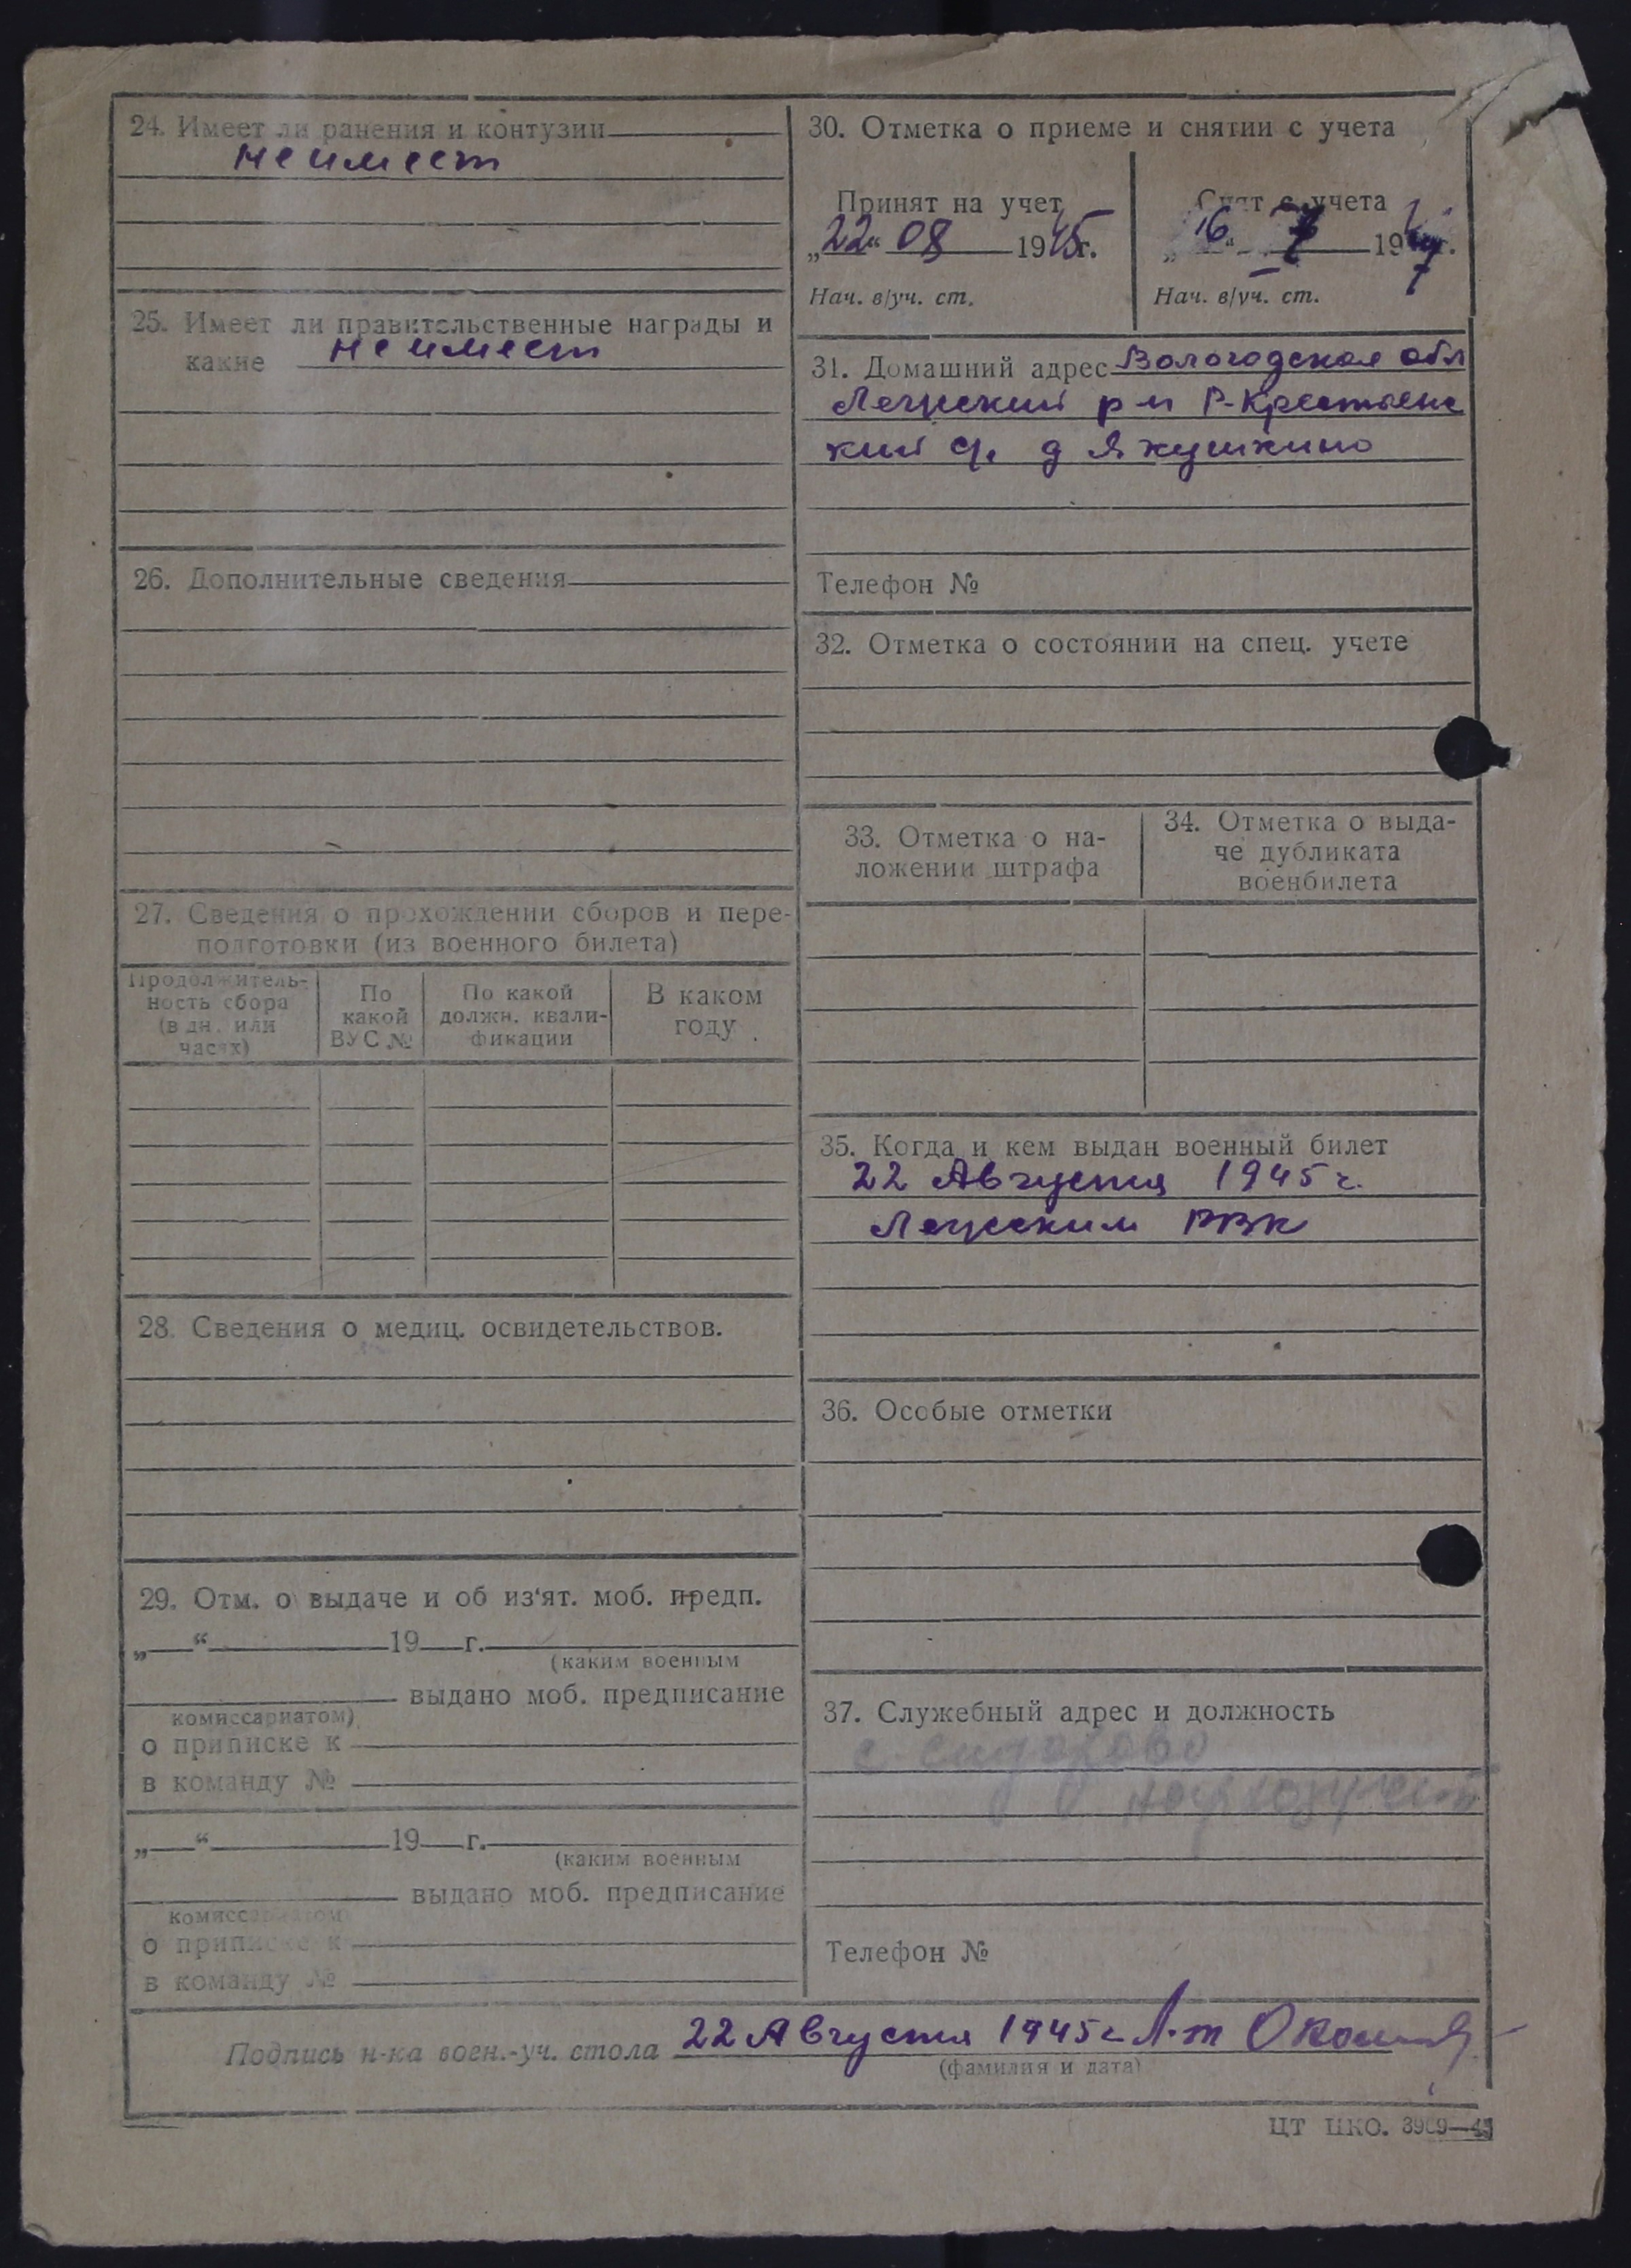 24. Имеет ли ранения и контузии
не имеет
25. Имеет ли правительственные награды и
какие не имеет
26. Дополнительные сведения
27. Сведения о прохождении сборов и пере-
подготовки (из военного билета)
Продолжитель-
ность сбора
(в дн. или
часах)
По
какой
ВУС №
По какой
должн. квали-
фикации
В каком
году
28. Сведения о медиц. освидетельствов.
29. Отм. о выдаче и об из'ят. моб. предп.
„ “ 19 г.
(каким военным
выдано моб. предписание
комиссариатом)
о приписке к
в команду №
„ “ 19 г.
(каким военным
выдано моб. предписание
комиссариатом
о приписке к
в команду №
30. Отметка о приеме и снятии с учета
Принят на учет
„22“ 08 1945г.
Нач. в/уч. ст.
Снят с учета
„16“ 194 г.
Нач. в/уч. ст.
31. Домашний адрес Вологодская обл
Лежский р-н Р-Крестьянс
кий с/с д Якушкино
Телефон №
32. Отметка о состоянии на спец. учете
33. Отметка о на-
ложении штрафа
34. Отметка о выда-
че дубликата
военбилета
35. Когда и кем выдан военный билет
22 Августа 1945 г.
Лежским РВК
36. Особые отметки
37. Служебный адрес и должность
с
Телефон №
Подпись н-ка воен.-уч. стола 22 Августа 1945 г Л-т
(фамилия и дата)
ЦТ НКО. 3969—45